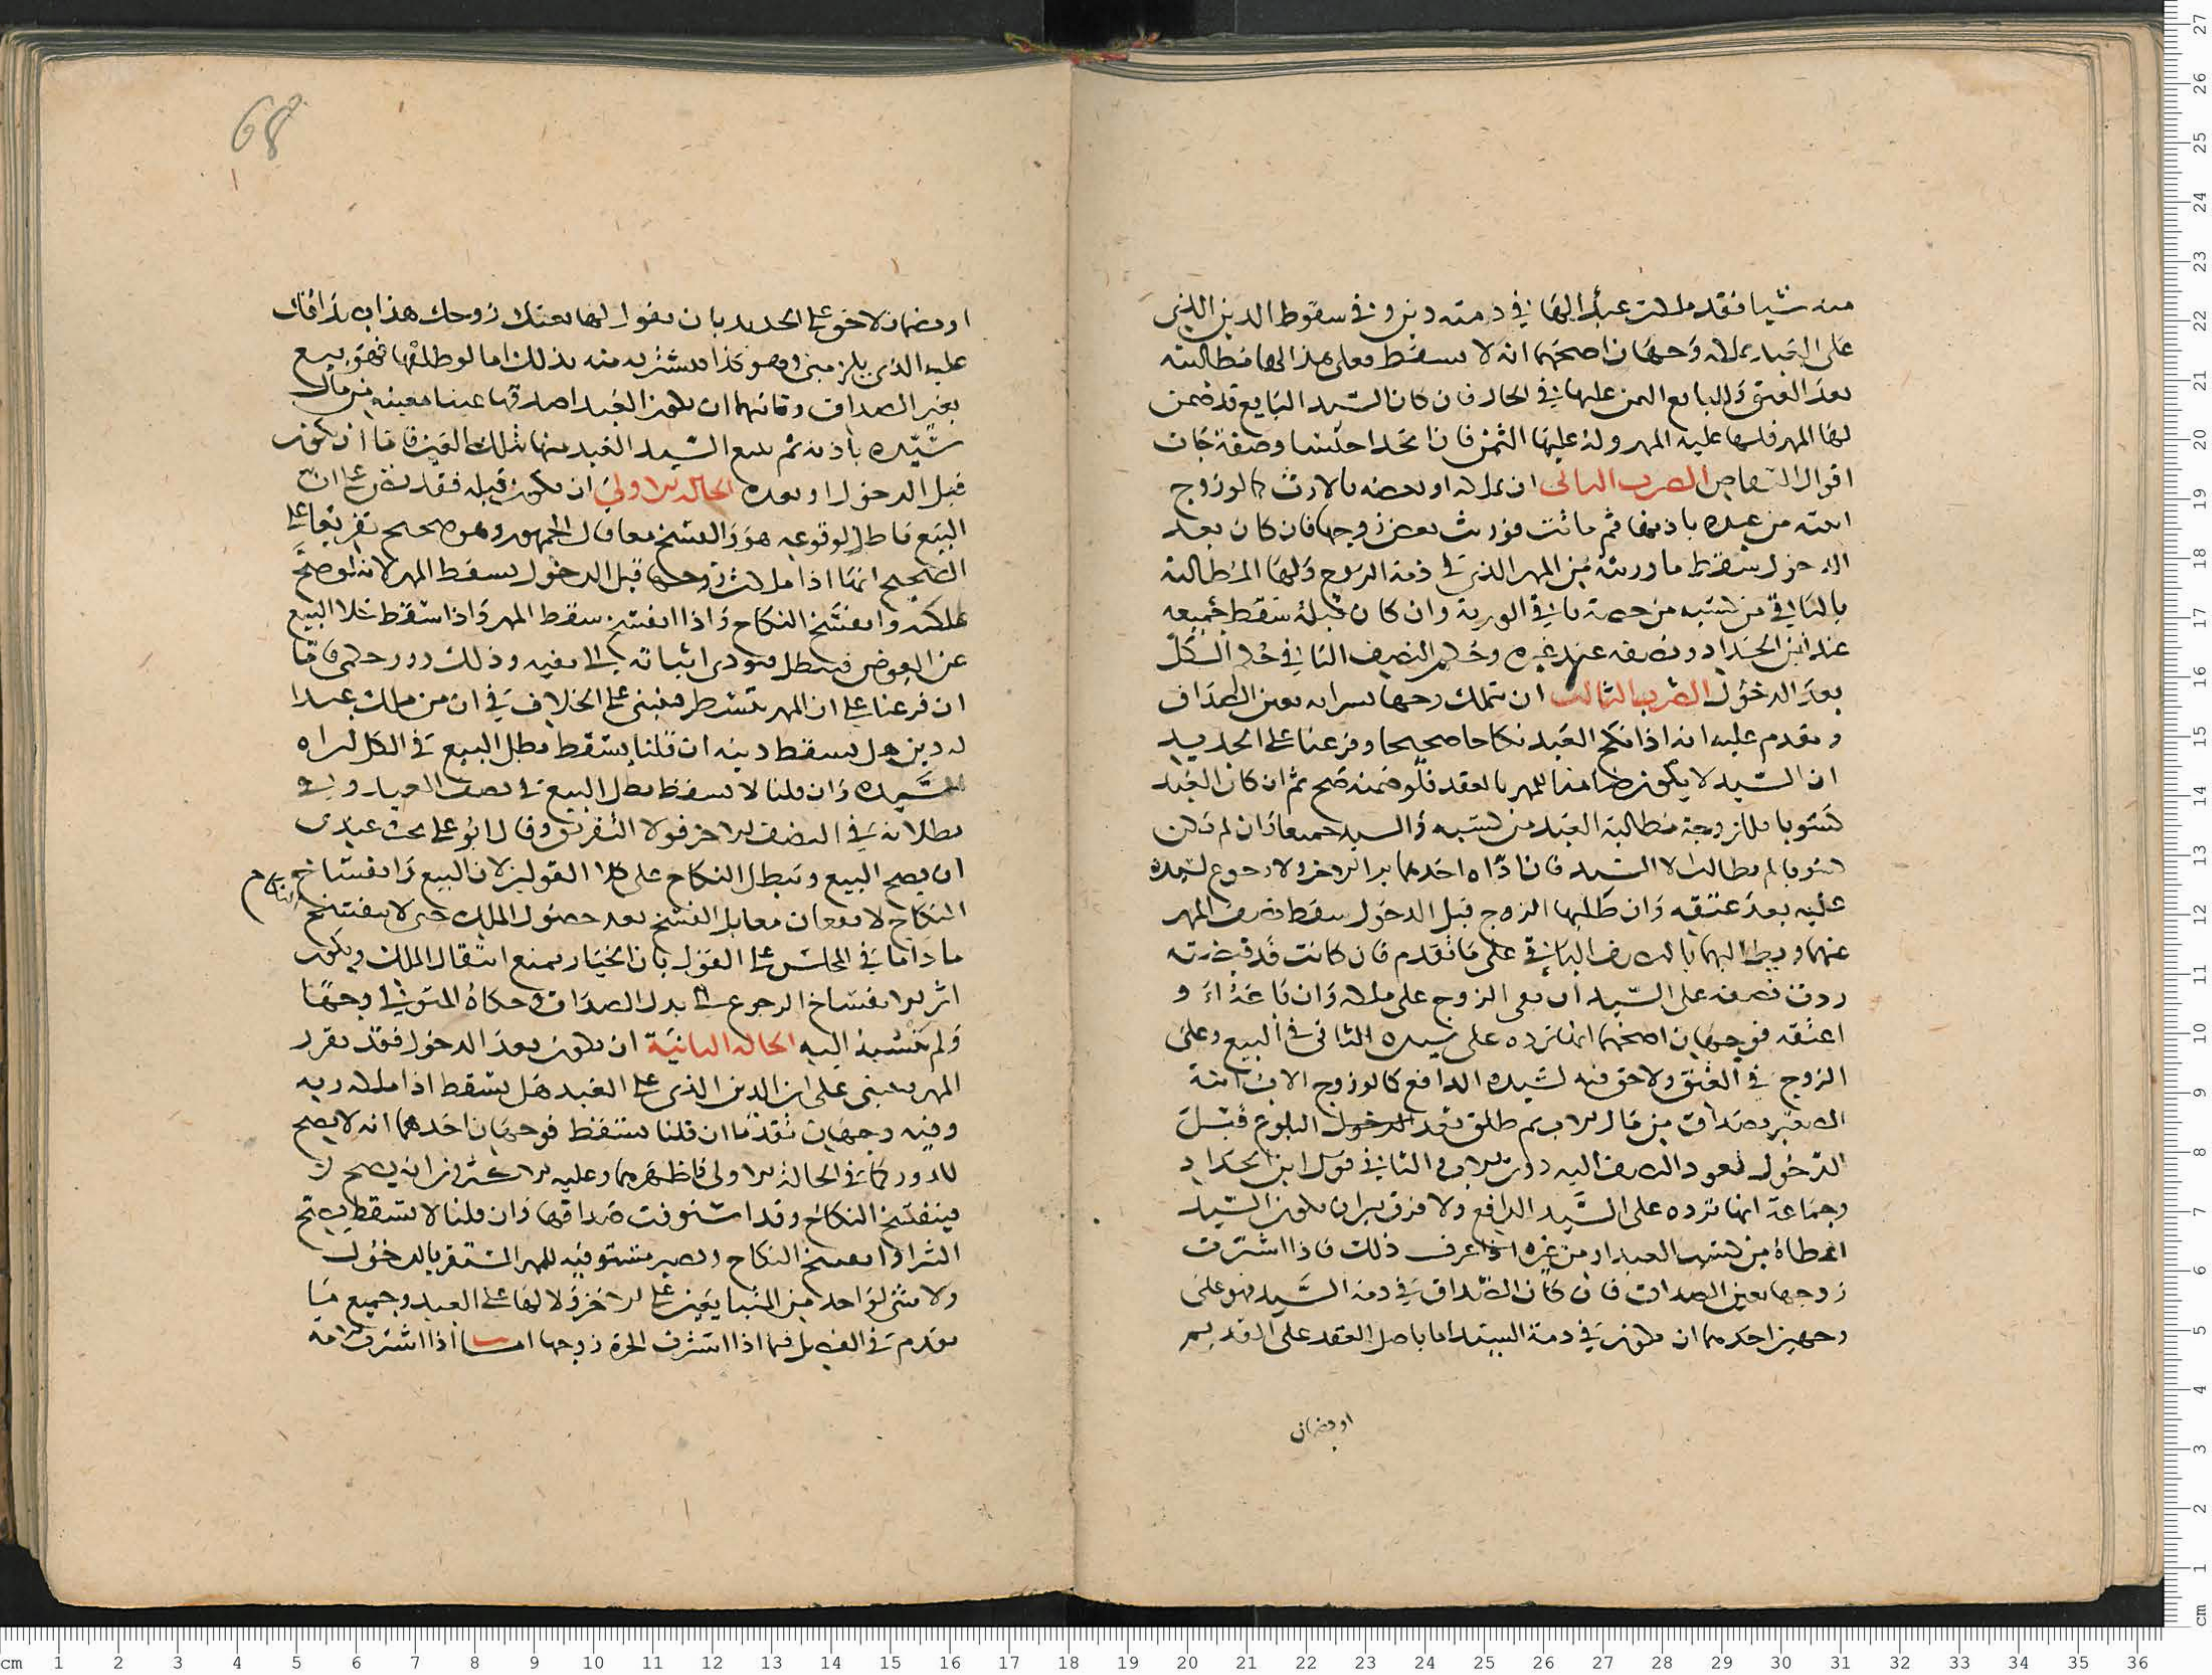 منه شيا فقد ملكت عبدا لها في ذمته دين وفي سقوط الدين الذي
على العبد بملكه وجهان اصحهما انه لا يسقط فعلى هذا لها مطالبته
بعد العتق وللبايع الثمن عليها في الحال فان كان السيد البايع قد ضمن
لها المهر فلها عليه المهر وله عليها الثمن فاذا اتحدا جنسا وصفة جات
اقوال التقاص الضرب الثاني ان تملكه او بعضه بالارث كما لو زوج
ابنته من عبده باذنها ثم ماتت فورث بعض زوجها فان كان بعد
الدخول سقط ما ورثته من المهر الذي في ذمة الزوج ولها المطالبة
بالباقي من كسبه من حصة باقي الورثة وان كان قبله سقط جميعه
عند ابن الحداد ونصفه عند غيره وحكم النصف الباقي حكم الكل
بعد الدخول الضرب الثالث ان تملك زوجها بشرايه بعين الصداق
وتقدم عليه انه اذا نكح العبد نكاحا صحيحا وفرعنا على الجديد
ان السيد لا يكون ضامنا للمهر بالعقد فلو ضمنه صح ثم ان كان العبد
كسوبا فللزوجة مطالبة العبد من كسبه والسيد جميعا وان لم يكن
كسوبا لم يطالب الا السيد فان اداه احدهما برا الاخر ولا رجوع لسيده
عليه بعد عتقه وان طلقها الزوج قبل الدخول سقط نصف المهر
عنهما ويطالبهما بالنصف الباقي على ما تقدم فان كانت قد قبضته
ردت نصفه على السيد ان بقي الزوج على ملكه وان باعه او
اعتقه فوجهان اصحهما انها ترده على سيده الثاني في البيع وعلى
الزوج في العتق ولا حق فيه لسيده الدافع كما لو زوج الاب ابنه
الصغير بصداق من مال الاب ثم طلق بعد البلوغ قبل
الدخول فعود النصف اليه دون الاب والثاني في قول ابن الحداد
وجماعة انها ترده على السيد الدافع ولا فرق بين ان يكون السيد
اعطاه من كسب العبد او من غيره اذا عرف ذلك فاذا اشترت
زوجها بعين الصداق فان كان الصداق في ذمة السيد فهو على
وجهين احدهما ان يكون في ذمة السيد اما باصل العقد على القديم
او بضمان
68
او بضمان لاحق على الجديد بان يقول لها بعتك زوجك هذا بصداقك
عليه الذي يلزمني وهو كذا فتشتريه منه بذلك اما لو طلقها فهو بيع
بغير الصداق وثانيهما ان يكون العبد اصدقها عينا معينة من مال
سيده باذنه ثم يبيع السيد العبد منها بتلك العين فاما ان يكون
قبل الدخول او بعده الحالة الاولى ان يكون قبله فقد نص على ان
البيع باطل لوقوعه هو والفسخ معا قال الجمهور وهو صحيح تفريعا على
الصحيح انها اذا ملكت زوجها قبل الدخول يسقط المهر لانه لو صح
ملكته وانفسخ النكاح واذا انفسخ سقط المهر واذا سقط خلا البيع
عن العوض فيبطل فيودي اثباته الى نفيه وذلك دور حكمي فاما
ان فرعنا على ان المهر يتشطر فيبنى على الخلاف في ان من ملك عبدا
له دين هل يسقط دينه ان قلنا يسقط بطل البيع في الكل
وان قلنا لا يسقط بطل البيع في نصف العبد وفي
بطلانه في النصف الاخر قولا التفريق وقال ابو علي بحث عندي
ان يصح البيع ويبطل النكاح على كلا القولين لان البيع وانفساخ
النكاح لا يقعان معا بل الفسخ بعد حصول الملك حتى لا ينفسخ النكاح
ما داما في المجلس على القول بان الخيار يمنع انتقال الملك ويكون
اثر الانفساخ الرجوع الى بدل الصداق وحكاه المتولي وجها
ولم ينسبه اليه الحالة الثانية ان يكون بعد الدخول فقد تقرر
المهر فيبنى على ان الدين الذي على العبد هل يسقط اذا ملكه ربه
وفيه وجهان تقدما ان قلنا يسقط فوجهان احدهما انه لا يصح
للدور كما في الحالة الاولى واظهرهما وعليه الاكثرون انه يصح
فينفسخ النكاح وقد استوفت صداقها وان قلنا لا يسقط فيصح
الشرا وانفسخ النكاح وتصير مستوفية للمهر المستقر بالدخول
ولا شي لواحد منهما على الاخر ولا لها على العبد وجميع ما
تقدم في الفصل فيما اذا اشترت الحرة زوجها اما اذا اشترت امة